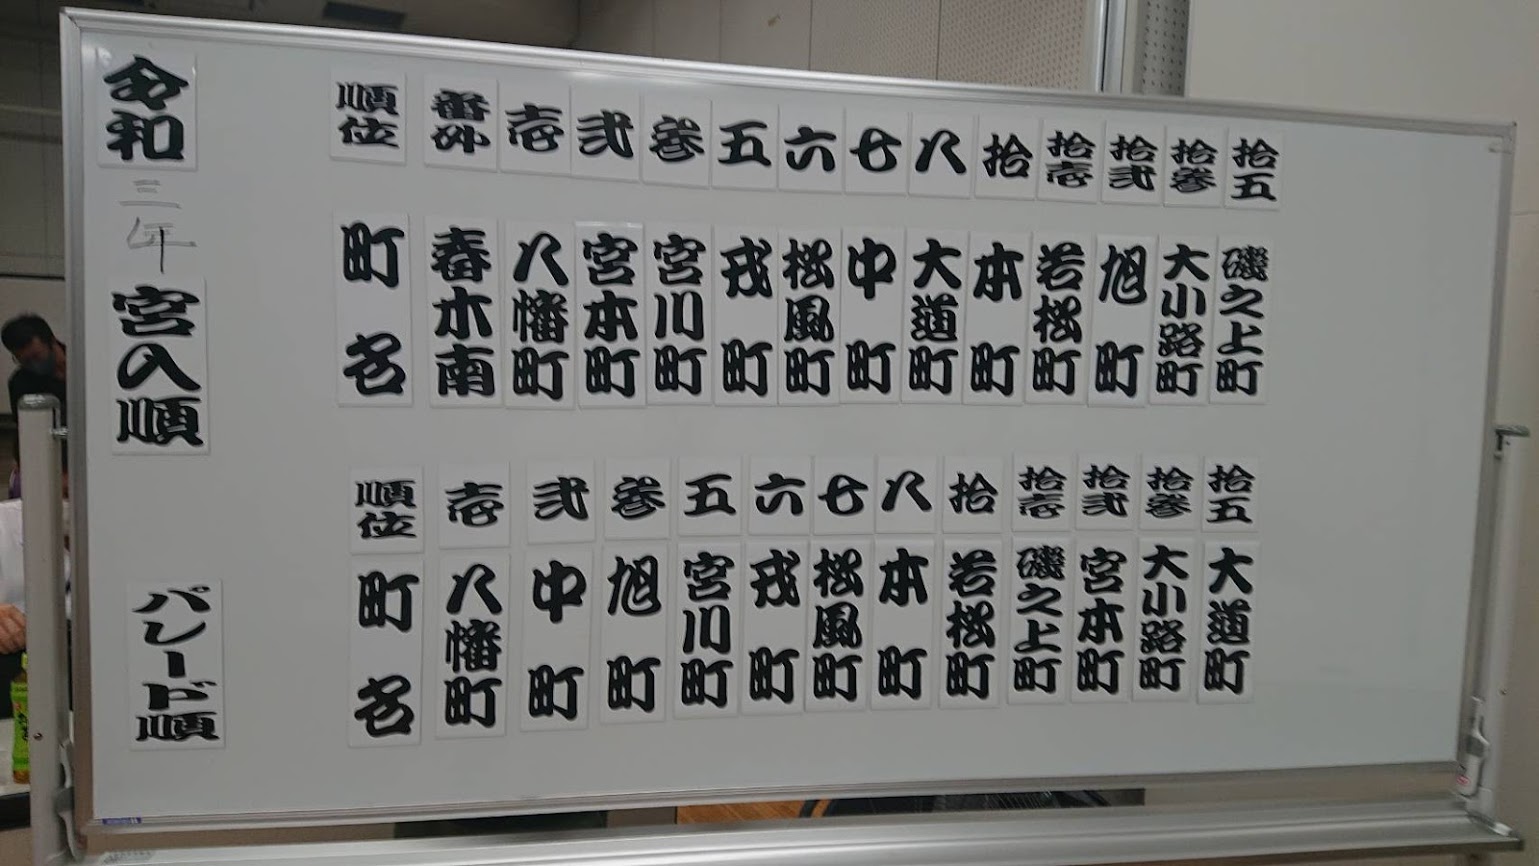 令和三年 宮入順
順位 番外 壱 弐 参 五 六 七 八 拾 拾壱 拾弐 拾参 拾五
町名 春木南 八幡町 宮本町 宮川町 戎町 松風町 中町 大道町 本町 若松町 旭町 大小路町 磯之上町
パレード順
順位 壱 弐 参 五 六 七 八 拾 拾壱 拾弐 拾参 拾五
町名 八幡町 中町 旭町 宮川町 戎町 松風町 本町 若松町 磯之上町 宮本町 大小路町 大道町